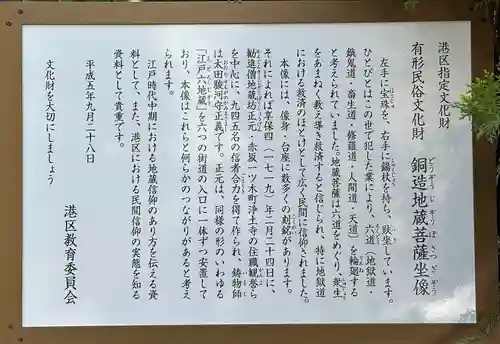 港区指定文化財
有形民俗文化財　銅造地蔵菩薩坐像
どうぞうじぞうぼさつざぞう
左手に宝珠を、右手に錫杖を持ち、趺坐しています。
ひとびとはこの世で犯した業により、六道（地獄道・
餓鬼道・畜生道・修羅道・人間道・天道）を輪廻する
と考えられていました。地蔵菩薩は六道をめぐり、衆生
をあまねく教え導き救済すると信じられ、特に地獄道
における救済のほとけとして広く民間に信仰されました。
本像には、像身・台座に数多くの刻銘があります。
それによれば享保四（一七一九）年二月二十四日に、
勧進僧地蔵坊正元・赤坂一ツ木町浄土寺の住職観誉ら
を中心に、九四五名の信者の力を得て作られ、鋳物師
は太田駿河守正義です。正元は、同様の形のいわゆる
「江戸六地蔵」を六つの街道の入口に一体ずつ安置して
おり、本像はこれらと何らかのつながりがあると考え
られます。
江戸時代中期における地蔵信仰のあり方を伝える資
料として、また、港区における民間信仰の実態を知る
資料として貴重です。
平成五年九月二十八日
文化財を大切にしましょう
港区教育委員会